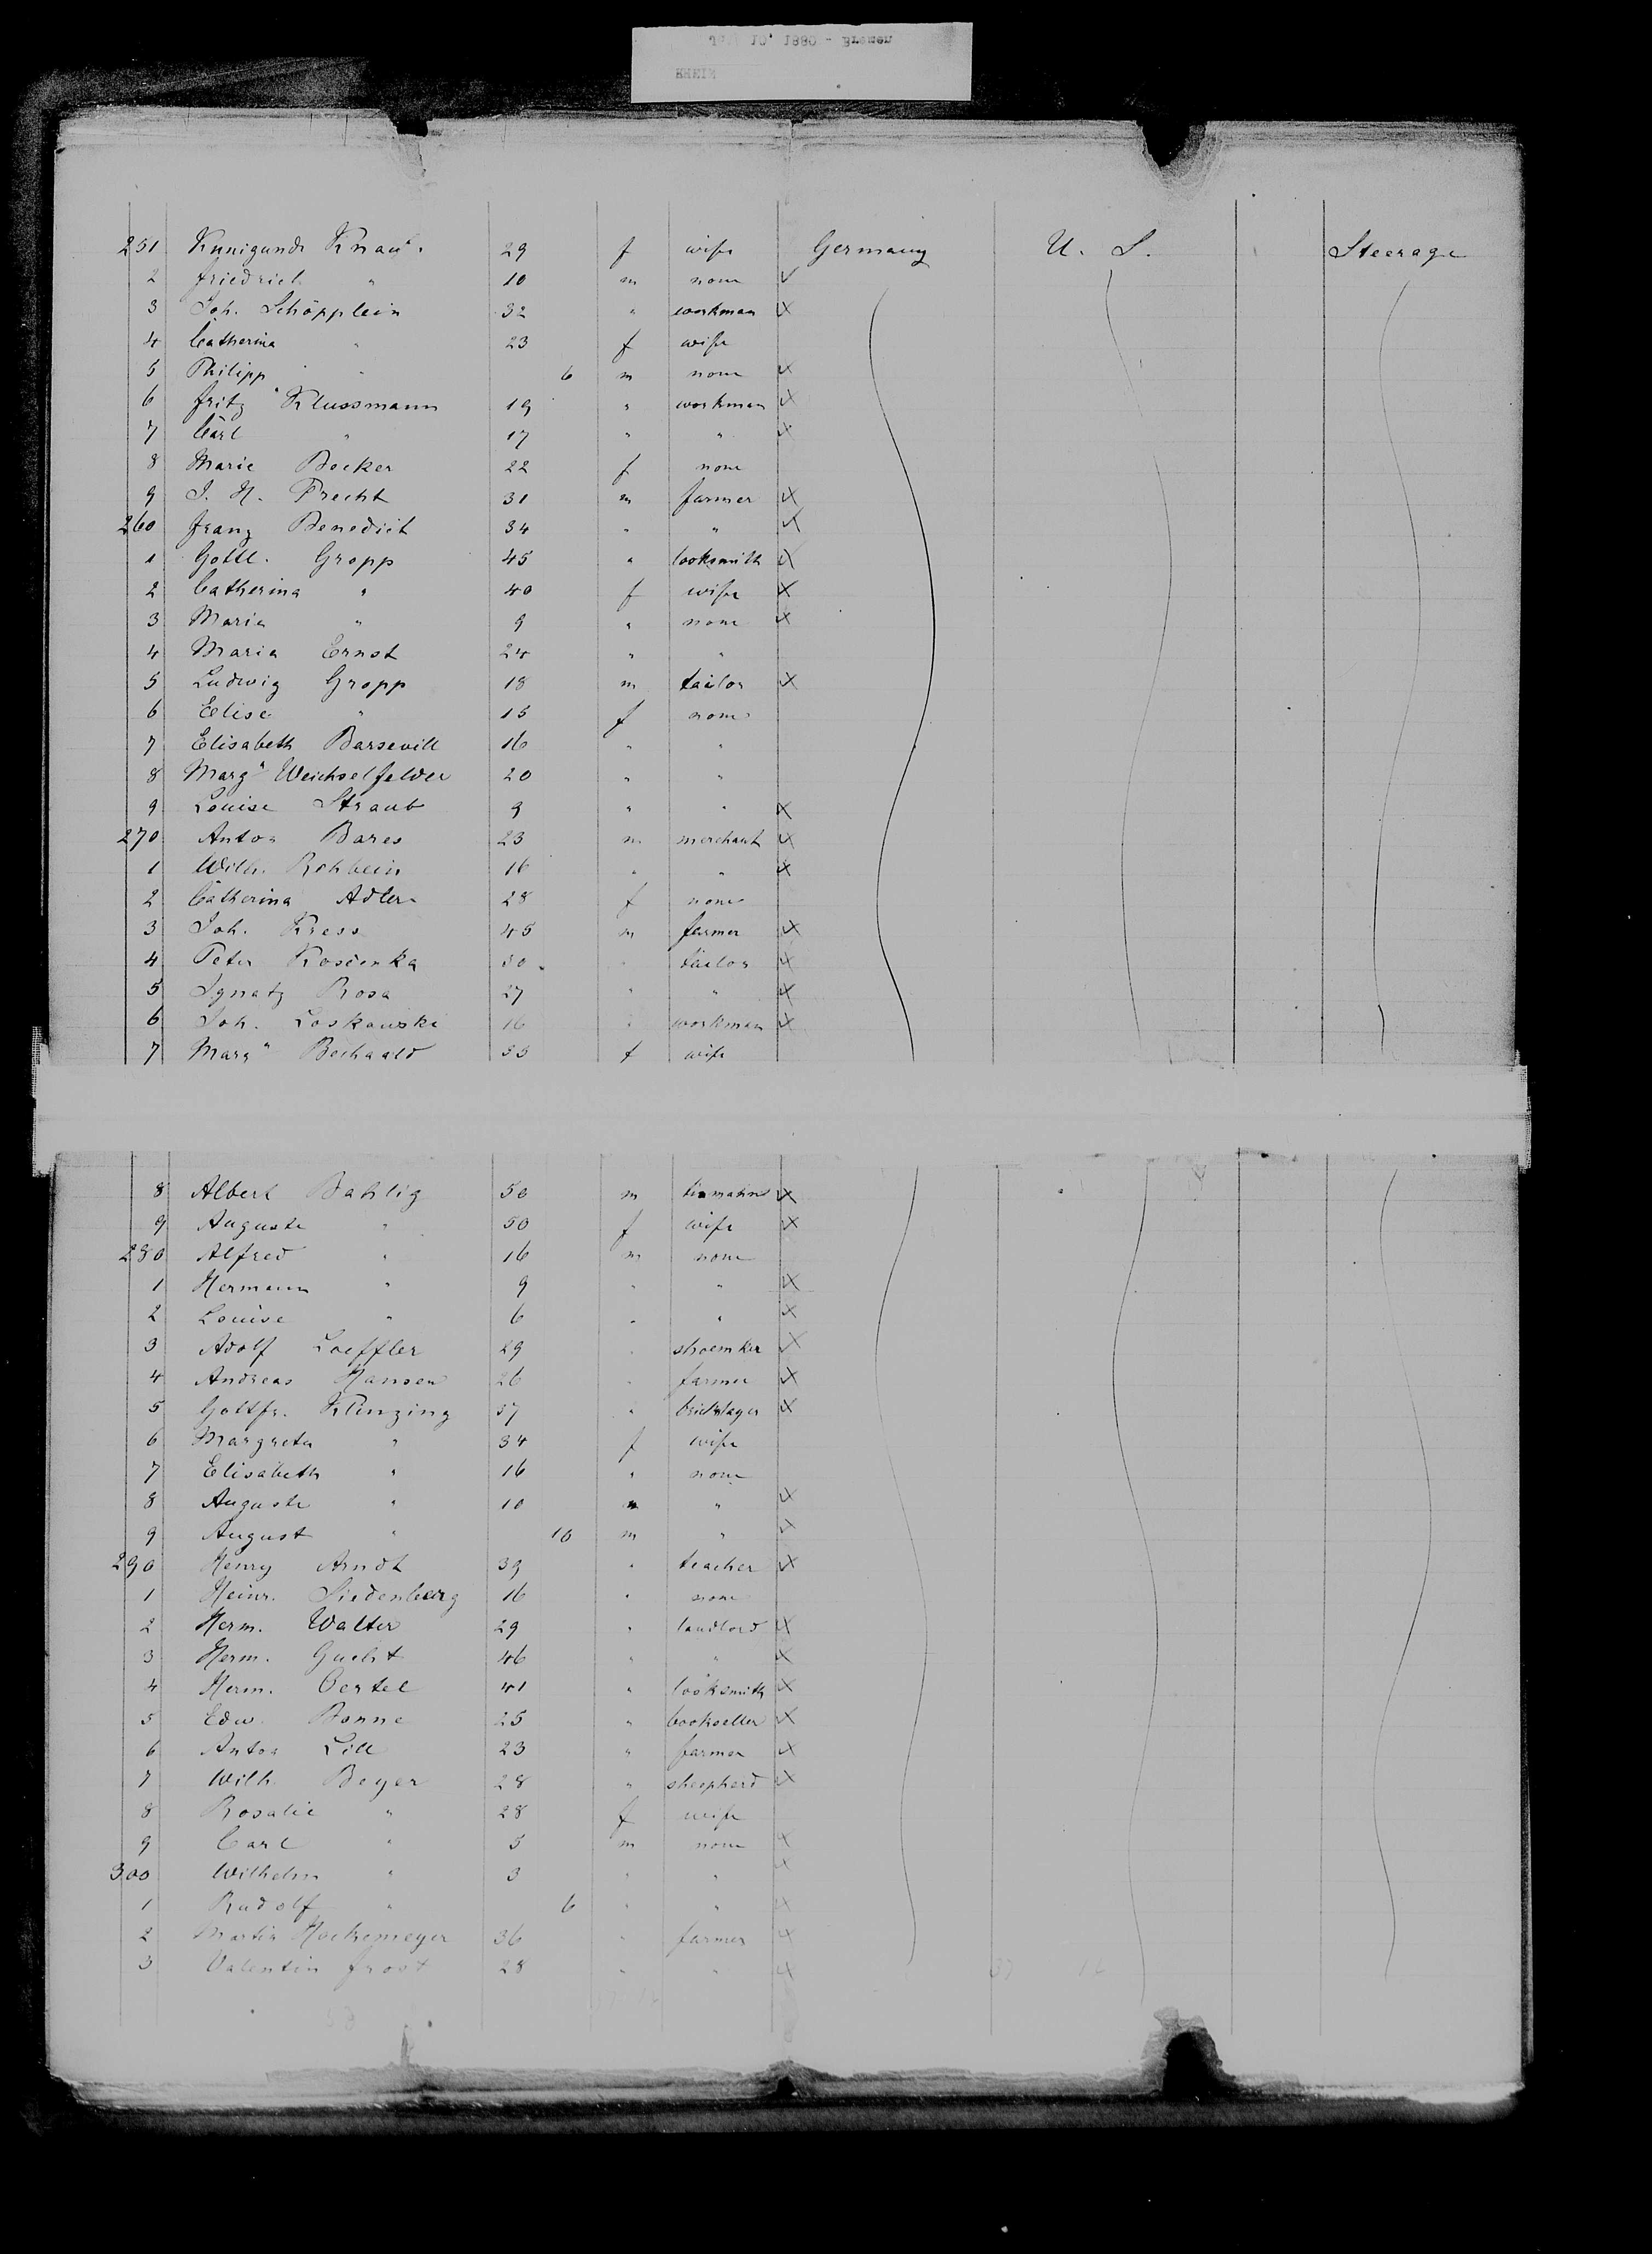 10' 1880 - Bremen
RHEIN
251 Kunigunde Knau 29 f wife Germany U. S. Steerage
2 Friedrich " 10 m none
3 Joh. Schöpplein 32 " workman X
4 Catherina " 23 f wife
5 Philipp " 6 m none X
6 Fritz Klussmann 19 " workman X
7 Carl " 17 " " X
8 Marie Becker 22 f none
9 J. H. Frecht 31 m farmer X
260 Franz Benedict 34 " " X
1 Gottl. Gropp 45 " locksmith X
2 Catherina " 40 f wife X
3 Maria " 9 " none X
4 Maria Ernst 24 " "
5 Ludwig Gropp 18 m tailor X
6 Elise " 15 f none
7 Elisabeth Barsevill 16 " "
8 Marg" Weichselfelder 20 " "
9 Louise Straub 9 " " X
270 Anton Bares 23 m merchant X
1 Wilh. Rehbein 16 " " X
2 Catherina Adler 28 f none
3 Joh. Kress 45 m farmer X
4 Peter Koscienka 30 " tailor X
5 Ignatz Rosa 27 " " X
6 Joh. Loskowski 16 " workman X
7 Marg" 35 f wife
8 Albert Bahlig 50 m X
9 Auguste " 50 f wife X
280 Alfred " 16 m none
1 Hermann " 9 " " X
2 Louise " 6 " " X
3 Adolf Loeffler 29 " shoemker X
4 Andreas Hansen 26 " farmer X
5 Gottfr. Klinzing 37 " bricklayer X
6 Margreta " 34 f wife
7 Elisabeth " 16 " none
8 Auguste " 10 " X
9 August " 10 m " X
290 Henry Arndt 39 " teacher X
1 Heinr. Siedenberg 16 " none
2 Herm. Walter 29 " landlord X
3 Herm. 46 " " X
4 Herm. Oertel 41 " locksmith X
5 Edw. Bonne 25 " bookseller X
6 Anton Lill 23 " farmer X
7 Wilh. Beyer 28 " sheepherd X
8 Rosalie " 28 f wife
9 Carl " 5 m none X
300 Wilhelm " 3 " " X
1 Rudolf " 6 " " X
2 Martin Hockemeyer 36 " farmer X
3 Valentin Frost 28 " " X